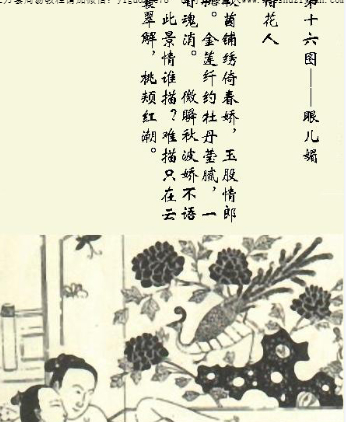 第十六图——眼儿媚
花人
茵铺绣倚春娇，玉股情郎
。金莲纤约牡丹莹腻，一
魂消。 微瞬秋波娇不语
此景情谁描？难描只在云
翠解，桃颊红潮。